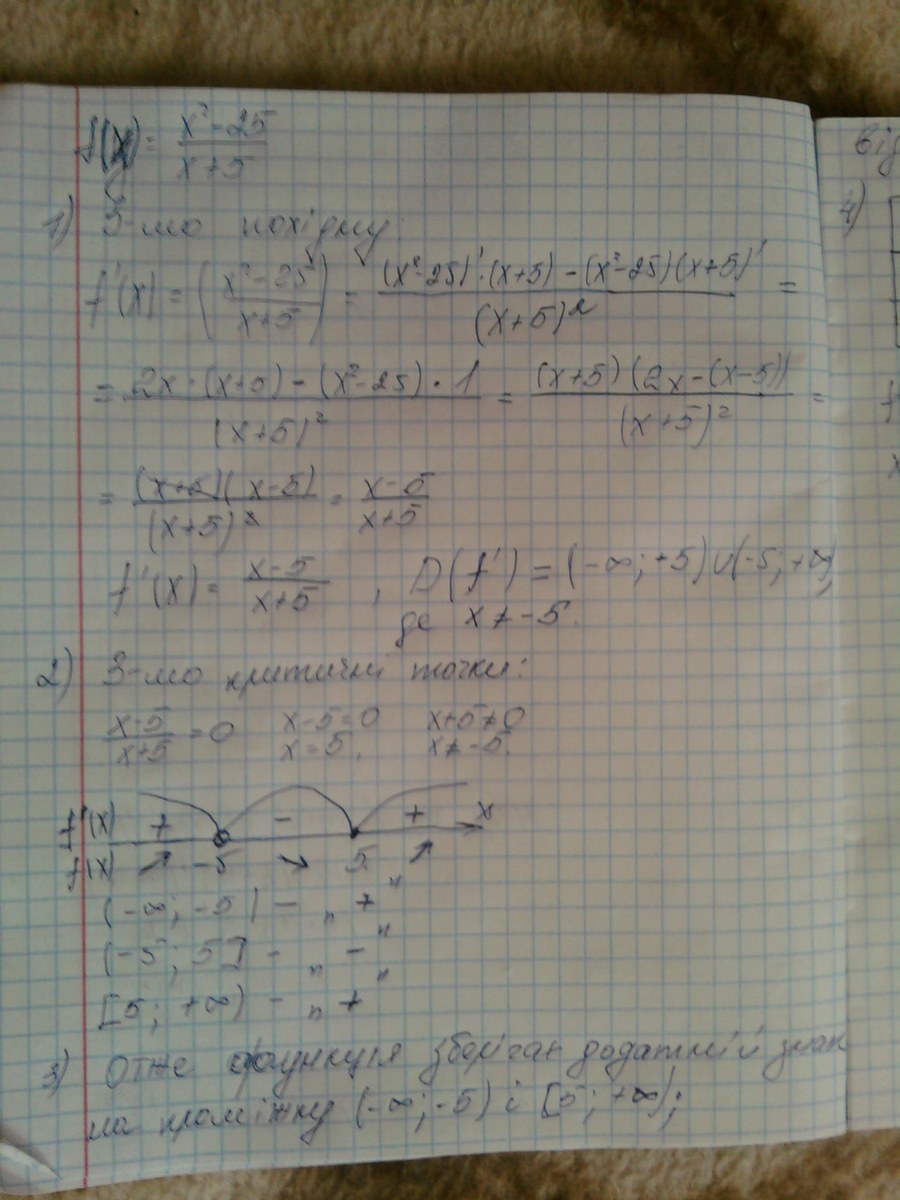 f(x) = (x² - 25)/(x + 5)
1) З-мо похідну:
f'(x) = ((x² - 25)/(x + 5)) = ((x² - 25)' · (x + 5) - (x² - 25)(x + 5)')/(x + 5)² =
= (2x · (x + 5) - (x² - 25) · 1)/(x + 5)² = ((x + 5)(2x - (x - 5)))/(x + 5)² =
= ((x + 5)(x - 5))/(x + 5)² = (x - 5)/(x + 5)
f'(x) = (x - 5)/(x + 5) , D(f') = (-∞; +5) ∪ (-5; +∞)
де x ≠ -5.
2) З-мо критичні точки:
(x - 5)/(x + 5) = 0 x - 5 = 0 x + 5 ≠ 0
x = 5. x ≠ -5.
f'(x) + - + x
f(x) ↗ -5 ↘ 5 ↗
(-∞; -5) - „ + "
(-5; 5] - „ - "
[5; +∞) - „ + "
3) Отже функція зберігає додатній знак
на проміжку (-∞; -5) і [5; +∞);
від
4)